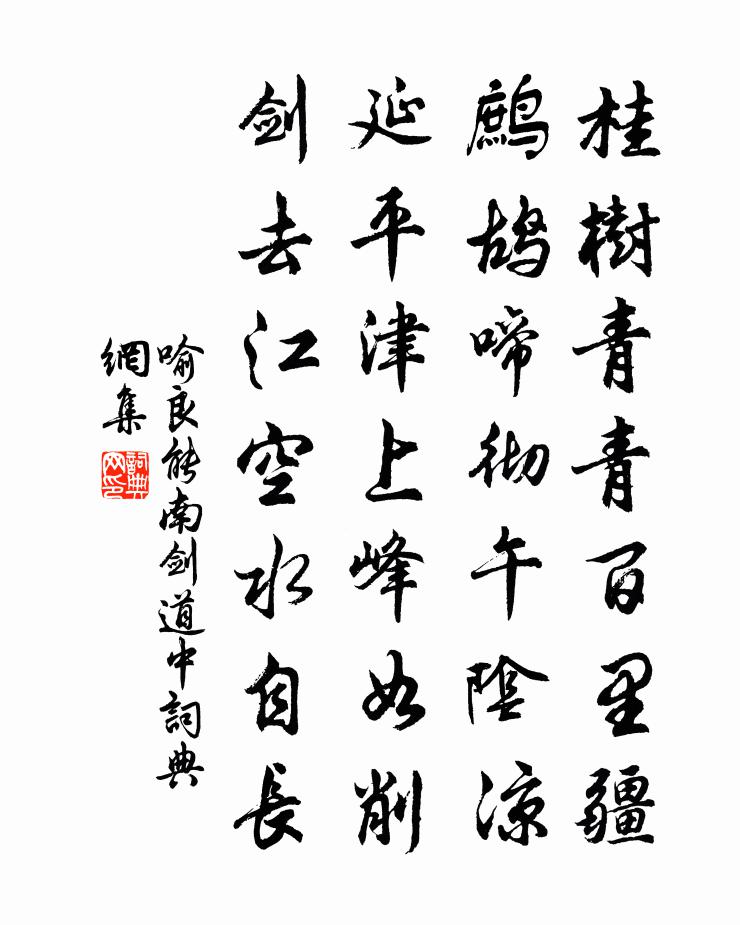 桂樹青青百里疆
鷓鴣啼彻午陰涼
延平津上峰如削
劍去江空水自長
喻良能南劍道中詞典
網集
詞典
网印